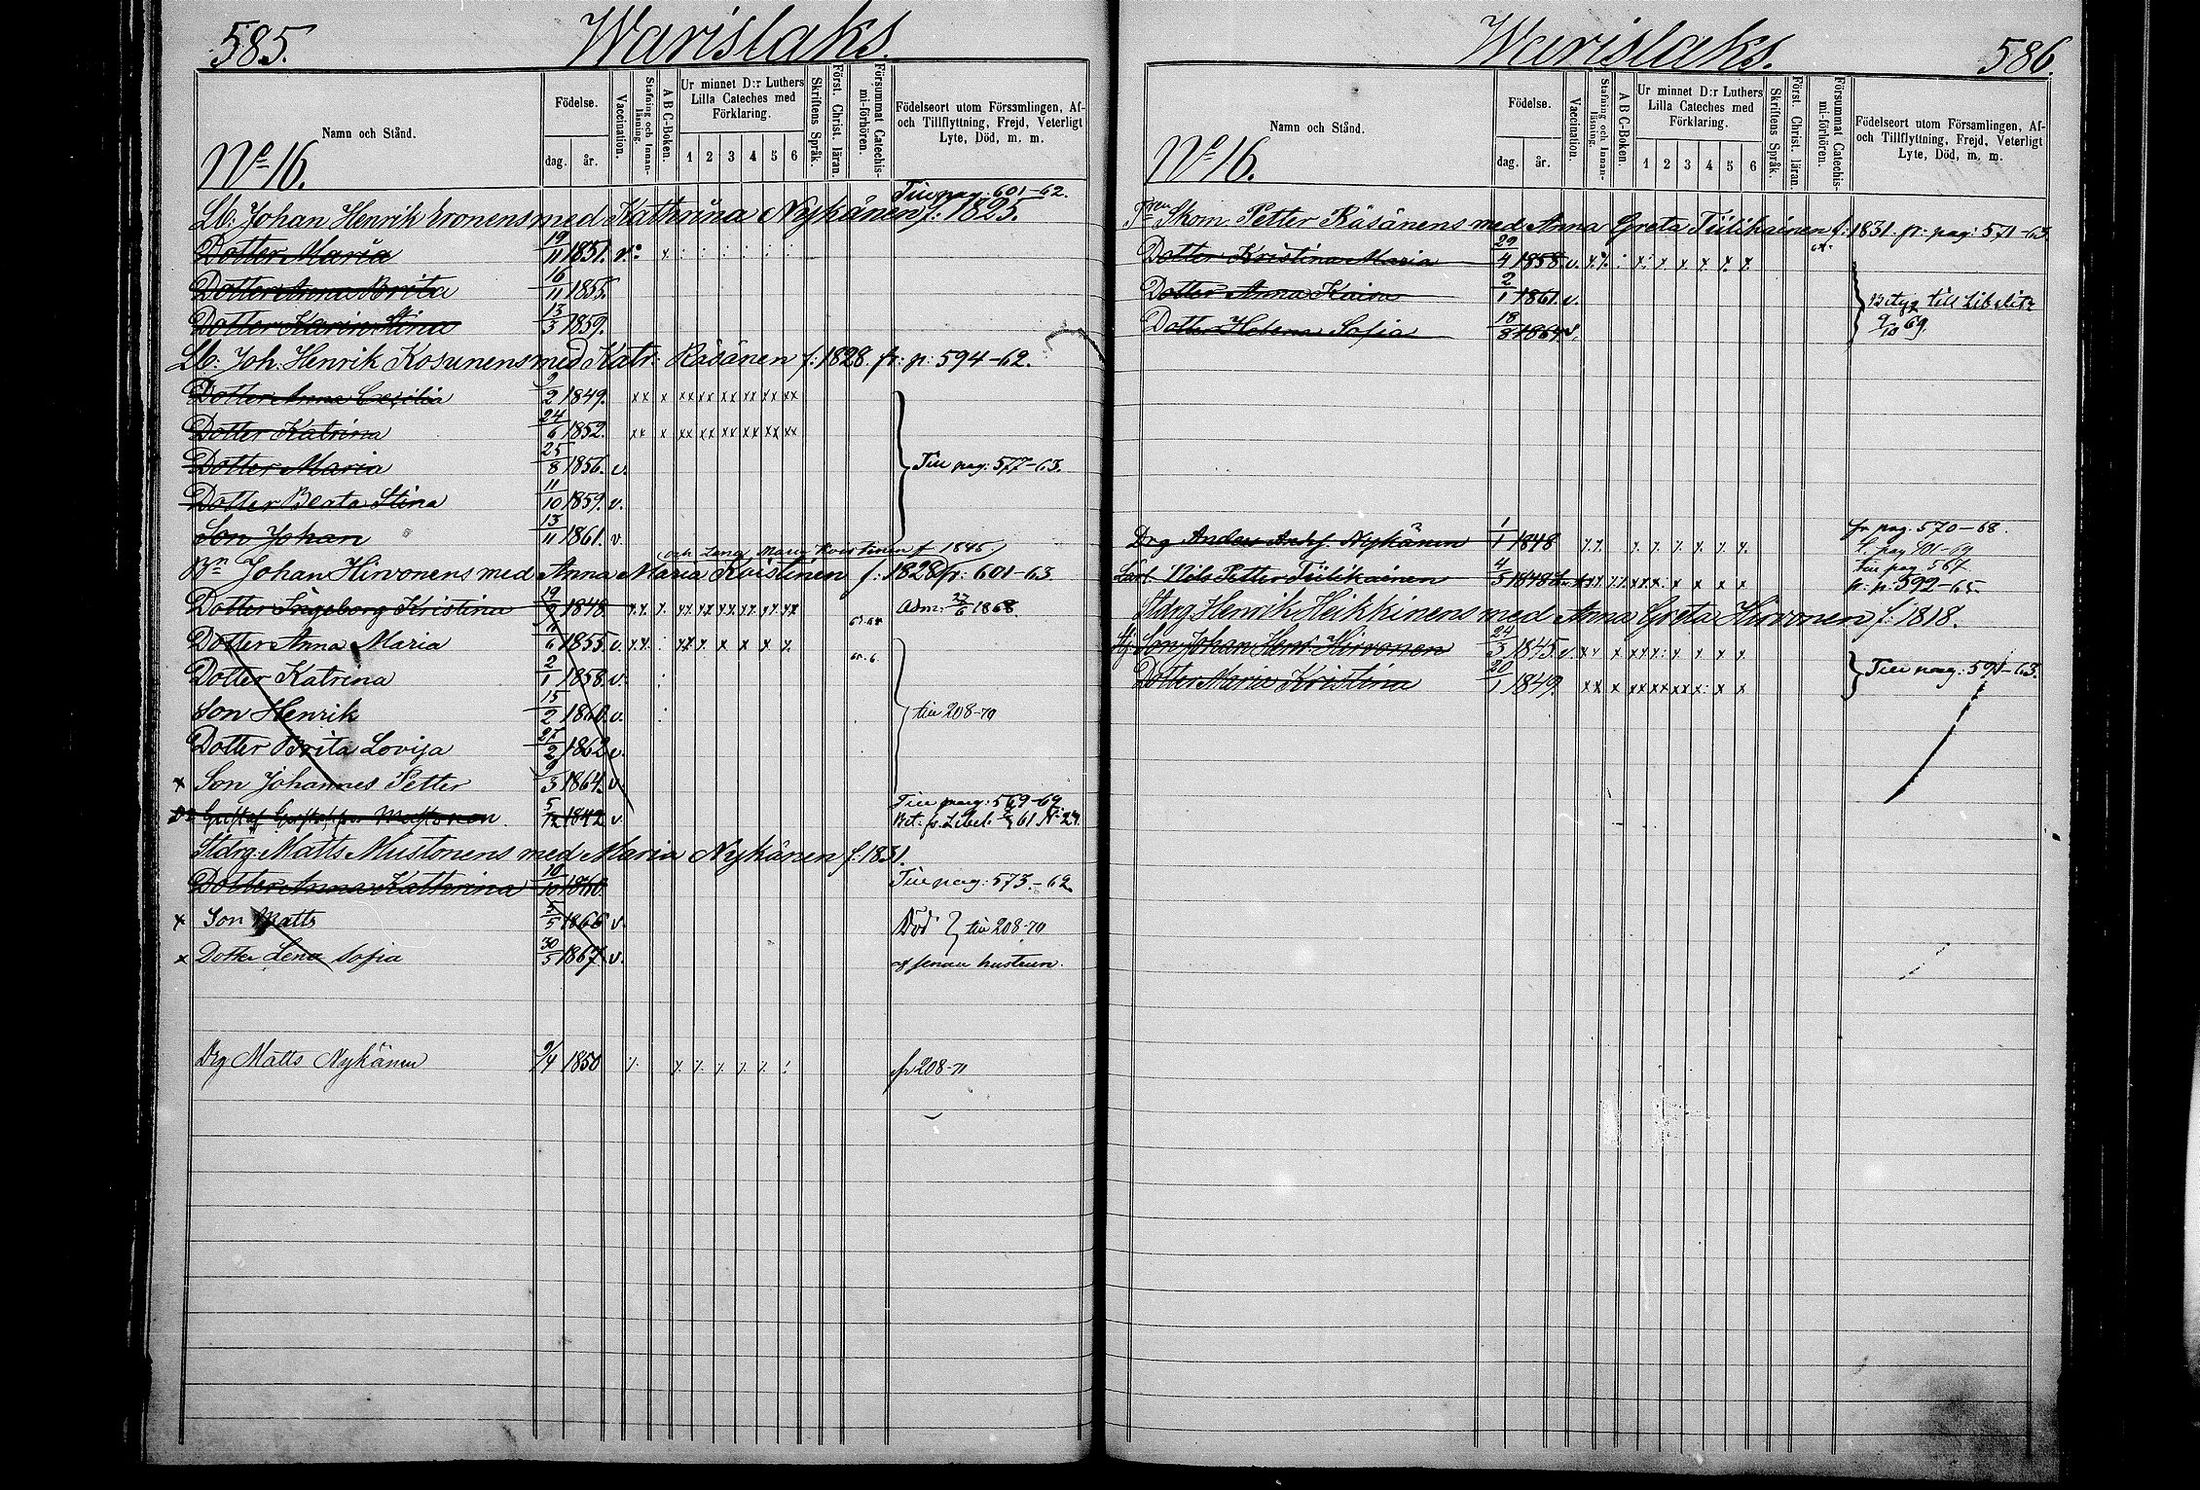 585. Warislaks.
Namn och Stånd.
Födelse.
dag. år.
Vaccination.
Stafning och Innan-läsning.
A B C-Boken.
Ur minnet D:r Luthers
Lilla Cateches med
Förklaring.
1 2 3 4 5 6
Skriftens Språk.
Först. Christ. läran.
Försummat Catechis-mi-förhören.
Födelseort utom Församlingen, Af-
och Tillflyttning, Frejd, Veterligt
Lyte, Död, m. m.
No 16.
Till pag: 601-62.
Lb: Johan Henrik Ironens med Kathrina Nykänen f: 1825.
Dotter Maria 19/11 1851. v.
Dotter Anna Brita 16/11 1855.
Dotter Karin Stina 13/3 1859.
Lb: Joh: Henrik Kosunens med Katr: Räsänen f: 1828 fr: p: 594-62.
Dotter Anna Cecilia 2/2 1849. xx x xx xx xx xx xx xx
Dotter Katrina 24/6 1852. xx x xx xx xx xx xx xx
Dotter Maria 25/8 1856. v. Till pag: 577-63.
Dotter Beata Stina 11/10 1859. v.
Son Johan 13/11 1861. v.
och Lena Maria Koistinen f 1845.
Johan Hirvonens med Anna Maria Koistinen f: 1828 fr: 601-63.
Dotter Ingeborg Kristina 19/9 1848 xx x xx xx xx xx xx xx Adm: 27/6 1868.
Dotter Anna Maria 6 1855. v. xx : xx x x x x x
Dotter Katrina 2/1 1858. v. :
Son Henrik 15/2 1860. v. : till 208-70
Dotter Brita Lovisa 27/2 1862 v.
x Son Johannes Petter 9/3 1864. v
Till pag: 569-69
Gustaf 5/12 1842 v Bet. fr. Libel. 61 N: 27.
Stdrg: Matts Mustonens med Maria Nykänen f: 1831.
Dotter Anna Katherina 10/10 1860 Till pag: 573-62.
x Son Matts 5/5 1866 v. Död till 208-70
x Dotter Lena Sofia 30/5 1867. v. af senare hustrun.
Drg Matts Nykänen 9/4 1850 fr 208-71
Warislaks. 586.
Namn och Stånd.
Födelse.
dag. år.
Vaccination.
Stafning och Innan-läsning.
A B C-Boken.
Ur minnet D:r Luthers
Lilla Cateches med
Förklaring.
1 2 3 4 5 6
Skriftens Språk.
Först. Christ. läran.
Försummat Catechis-mi-förhören.
Födelseort utom Församlingen, Af-
och Tillflyttning, Frejd, Veterligt
Lyte, Död, m. m.
No 16.
Skom. Petter Räsänens med Anna Greta Tiilikainen f: 1831 fr: pag: 571-63
Dotter Kristina Maria 29/4 1858. v. x x : x x x x x x
Dotter Anna Kaisa 2/1 1861. v. Betyg till Libelitz
Dotter Helena Sofia 18/8 1864 v. 9/10 69.
fr pag. 570-68.
Drg Anders Nykänen 1/1 1848 x x x x x x x x t. pag 401-69
till pag 567.
Nils Petter Tiilikainen 4/5 1848 fr. p: 592-65.
Stdrg Henrik Heikkinens med Anna Greta Hirvonen f: 1818.
Son Johan Henr. Hirvonen 24/3 1845. v.
Dotter Maria Kristina 20/1 1849.